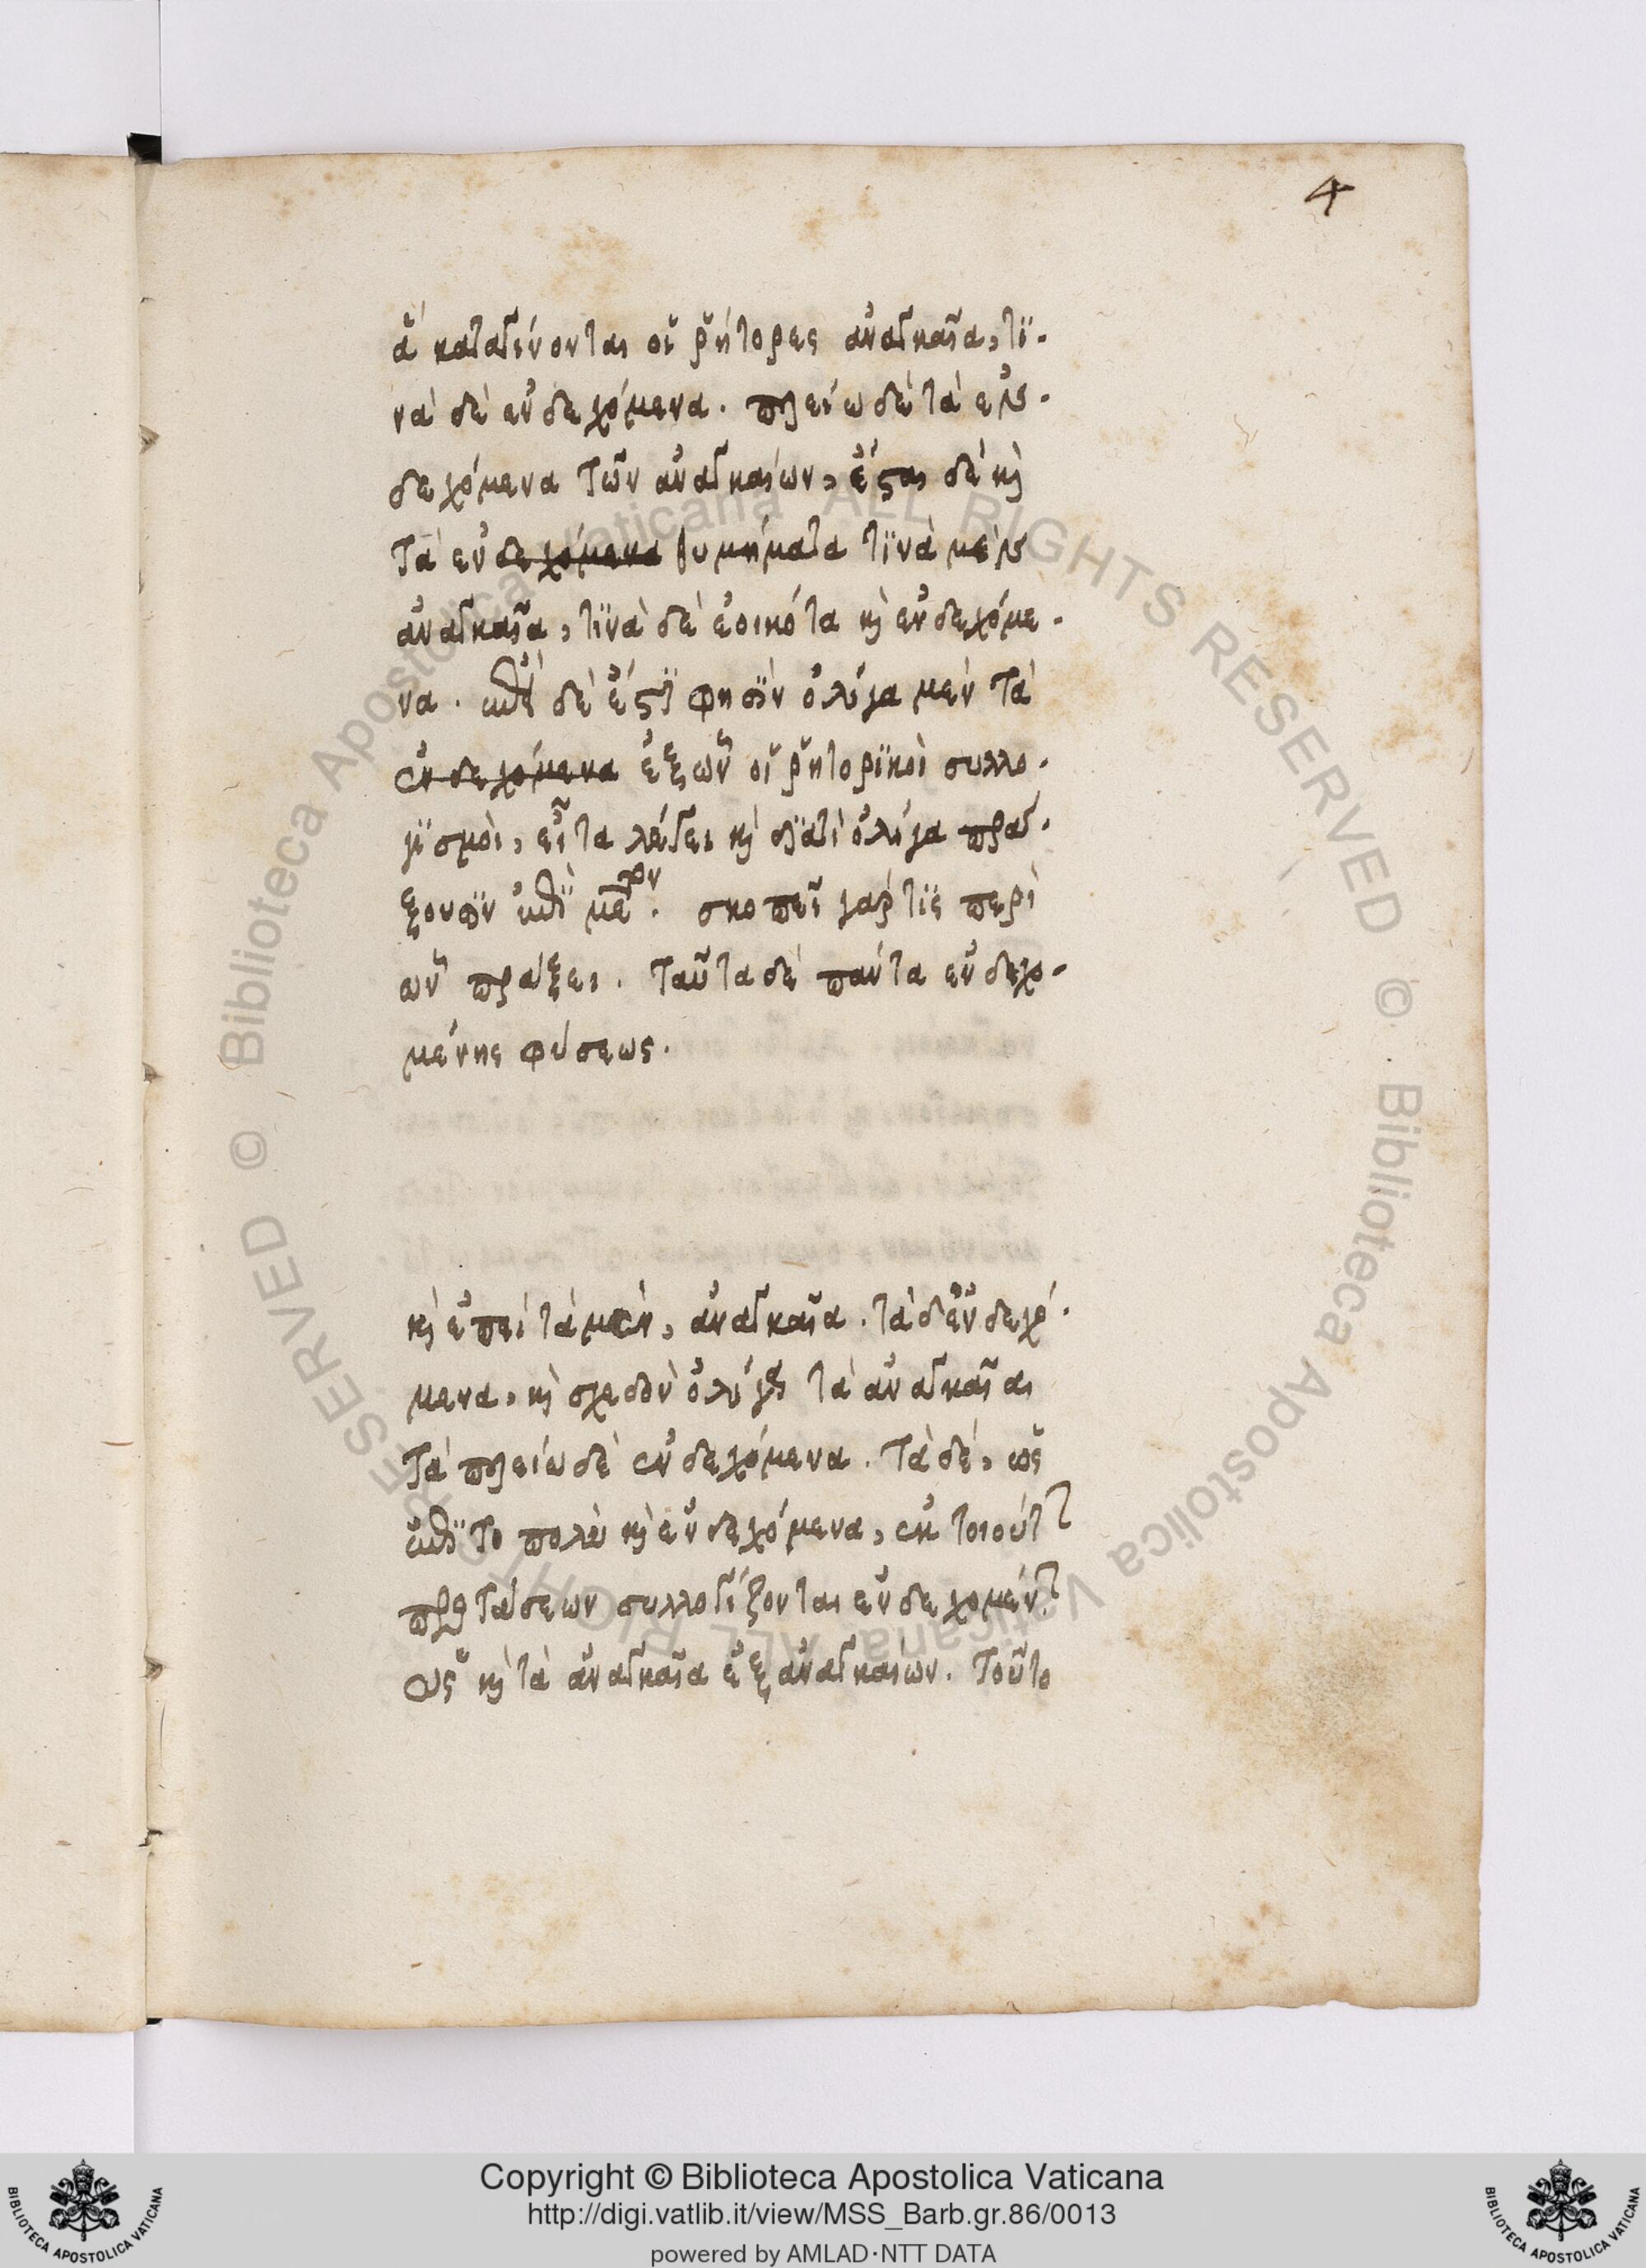 4
ἃ καταγίνονται οἱ ῥήτορες ἀναγκαῖα, τι-
νὰ δὲ ἐνδεχόμενα. πλείω δὲ τὰ ἐν-
δεχόμενα τῶν ἀναγκαίων, ἔσται δὲ καὶ
τὰ ἐνδεχόμενα θυμήματα τινὰ μὲν
ἀναγκαῖα, τινὰ δὲ ἐοικότα καὶ ἐνδεχόμε-
να. ἐπεὶ δὲ ἔστι φησὶν ὀλίγα μὲν τὰ
ἐνδεχόμενα ἐξ ὧν οἱ ῥητορικοὶ συλλο-
γισμοὶ, εἶτα λέγει καὶ διατὶ ὀλίγα πρατ-
ξουσιν ἐπὶ. σκοπεῖ γάρ τις περὶ
ὧν πράξει. ταῦτα δὲ πάντα ἐνδεχο-
μένης φύσεως.
καὶ ἐπεὶ τὰ μὲν, ἀναγκαῖα. τὰ δ' ἐνδεχό-
μενα, καὶ σχεδὸν ὀλίγα τὰ ἀναγκαῖα
τὰ πλείω δὲ ἐνδεχόμενα. τὰ δὲ, ὡς
ἐπὶ τὸ πολὺ καὶ ἐνδεχόμενα, ἐκ τοιούτων
προτάσεων συλλογίζονται ἐνδεχομένων.
ὡς καὶ τὰ ἀναγκαῖα ἐξ ἀναγκαίων. τοῦτο
Copyright © Biblioteca Apostolica Vaticana
http://digi.vatlib.it/view/MSS_Barb.gr.86/0013
powered by AMLAD·NTT DATA
© Biblioteca Apostolica Vaticana ALL RIGHTS RESERVED
© Biblioteca Apostolica Vaticana ALL RIGHTS RESERVED
BIBLIOTECA APOSTOLICA VATICANA
BIBLIOTECA APOSTOLICA VATICANA